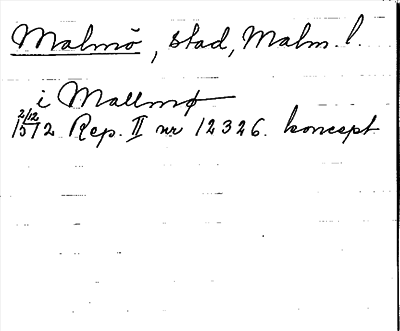 Malmö, stad, Malm. l.
i Mallmø
2/12
1512 Rep. II nr 12326. koncept